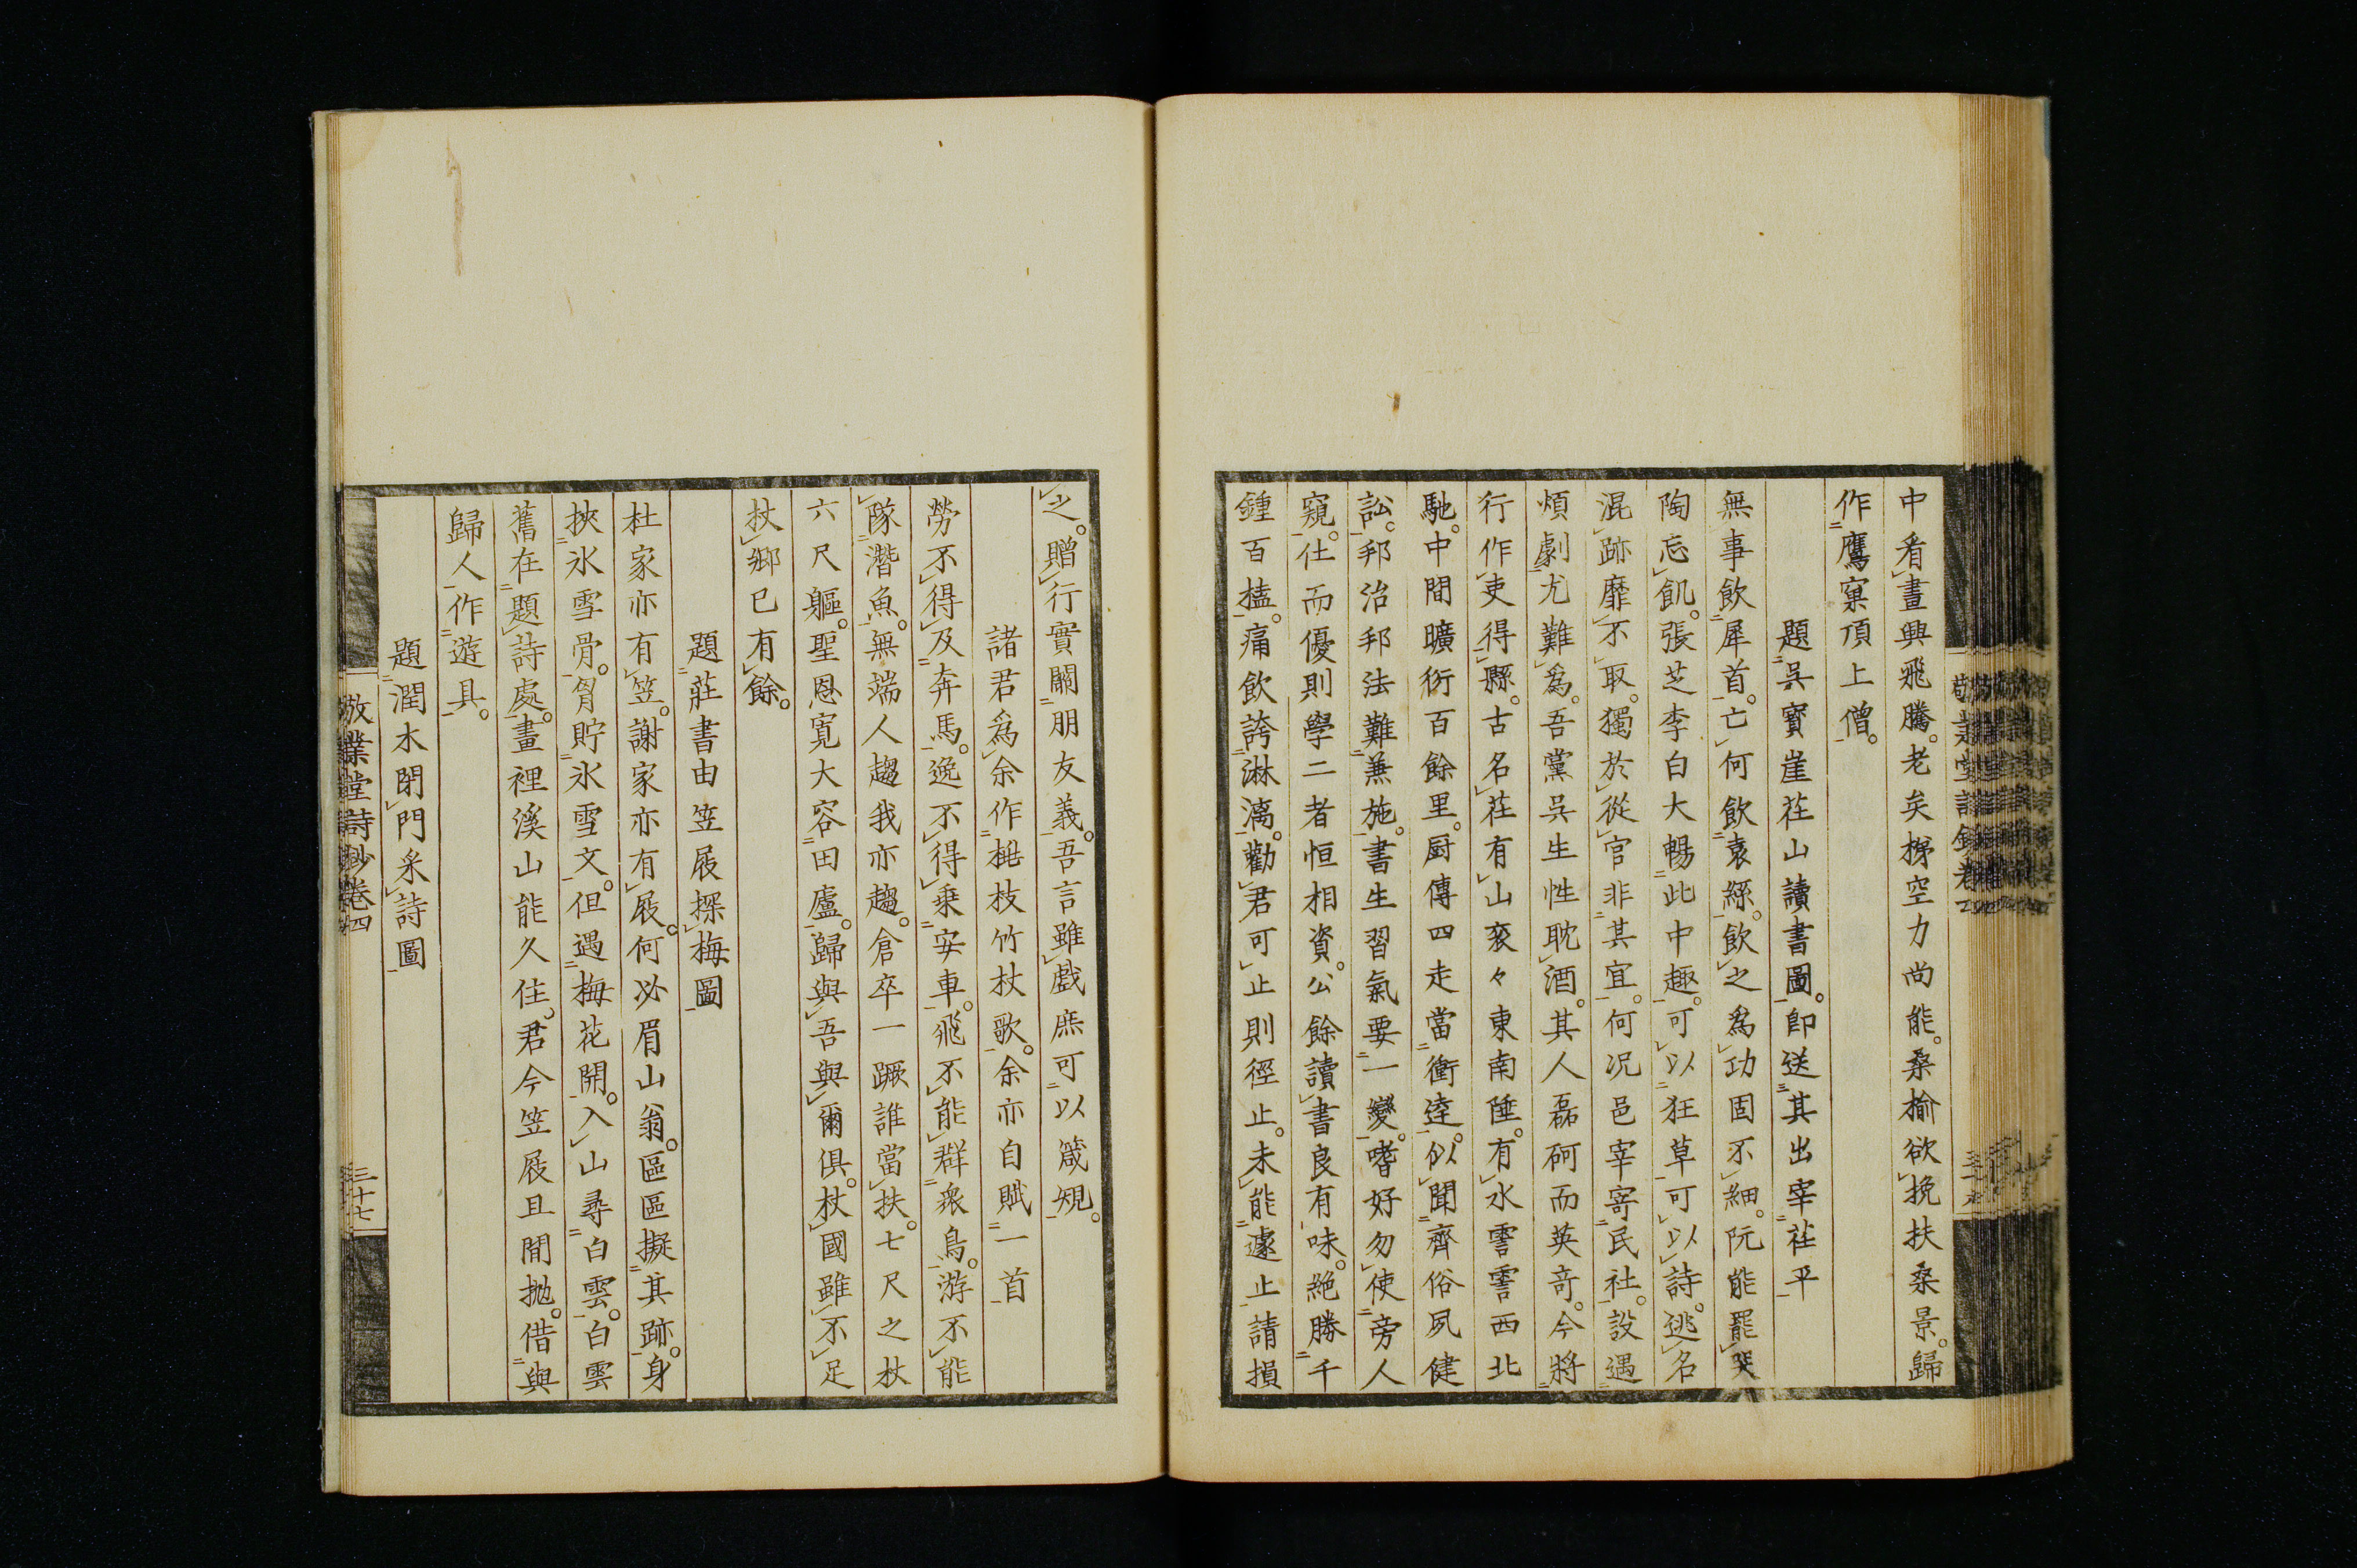 中看畫興飛騰。老矣梯空力尚能。桑榆欲挽扶桑景。歸
作鷹窠頂上僧。
題吳寶崖茌山讀書圖。即送其出宰茌平
無事飲犀首。亡何飲袁絲。飲之為功固不細。阮能罷哭
陶忘飢。張芝李白大暢此中趣。可以狂草可以詩。逃名
混跡靡不取。獨於從官非其宜。何況邑宰寄民社。設遇
煩劇尤難為。吾黨吳生性耽酒。其人磊砢而英奇。今將
行作吏得縣。古名茌有山衮々東南陲。有水霅霅西北
馳。中間曠衍百餘里。厨傳四走當衝逵。似聞齊俗夙健
訟。邦治邦法難兼施。書生習氣要一變。嗜好勿使旁人
窺。仕而優則學二者恒相資。公餘讀書良有味。絕勝千
鍾百榼。痛飲誇淋漓。勸君可止則徑止。未能遽止請損
之。贈行實關朋友義。吾言雖戲庶可以箴規。
諸君為余作桃枝竹杖歌。余亦自賦一首
勞不得及奔馬。逸不得乗安車。飛不能群衆鳥。游不能
隊潛魚。無端人趨我亦趨。倉卒一蹶誰當扶。七尺之杖
六尺軀。聖恩寬大容田廬。歸與吾與爾俱。杖國雖不足
杖鄉已有餘。
題莊書由笠屐探梅圖
杜家亦有笠。謝家亦有屐。何必眉山翁。區區擬其跡。身
挾氷雪骨。胷貯氷雪文。但遇梅花開。入山尋白雲。白雲
舊在題詩處。畫裡溪山能久住。君今笠屐且閒拋。借與
歸人作遊具。
題潤木閉門采詩圖
敬業堂詩抄卷四
三十七